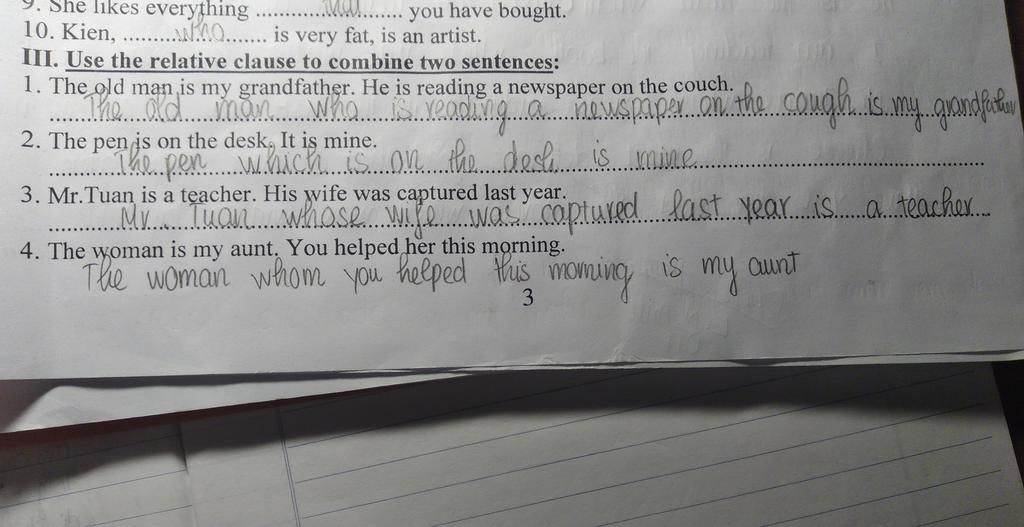 9. She likes everything ............that........ you have bought.
10. Kien, .........who....... is very fat, is an artist.
III. Use the relative clause to combine two sentences:
1. The old man is my grandfather. He is reading a newspaper on the couch.
The old man who is reading a newspaper on the cough is my grandfather
2. The pen is on the desk. It is mine.
The pen which is on the desk is mine
3. Mr.Tuan is a teacher. His wife was captured last year.
Mr. Tuan whose wife was captured last year is a teacher
4. The woman is my aunt. You helped her this morning.
The woman whom you helped this morning is my aunt
3